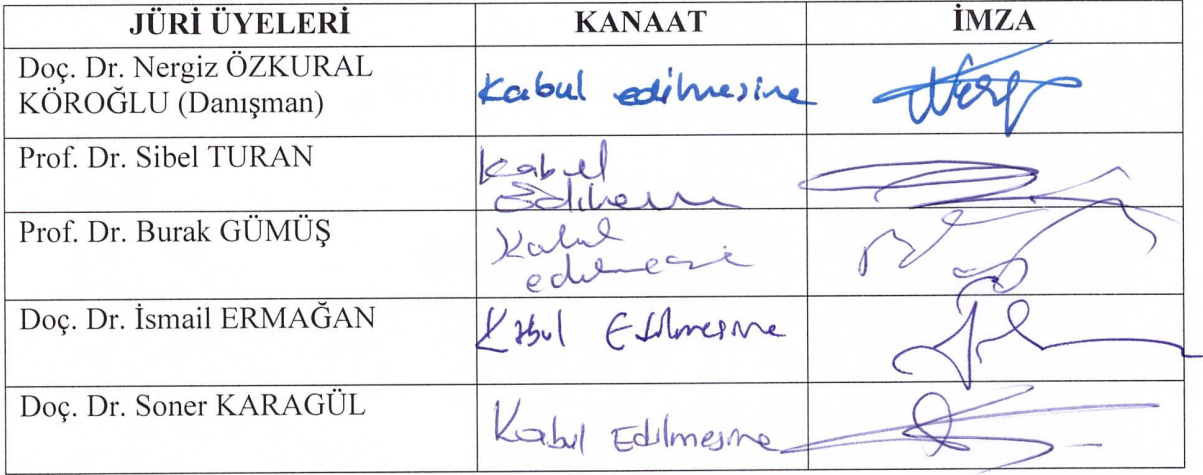 JÜRİ ÜYELERİ KANAAT İMZA
Doç. Dr. Nergiz ÖZKURAL
KÖROĞLU (Danışman) Kabul edilmesine
Prof. Dr. Sibel TURAN Kabul
Prof. Dr. Burak GÜMÜŞ Kabul
Doç. Dr. İsmail ERMAĞAN Kabul Edilmesine
Doç. Dr. Soner KARAGÜL Kabul Edilmesine